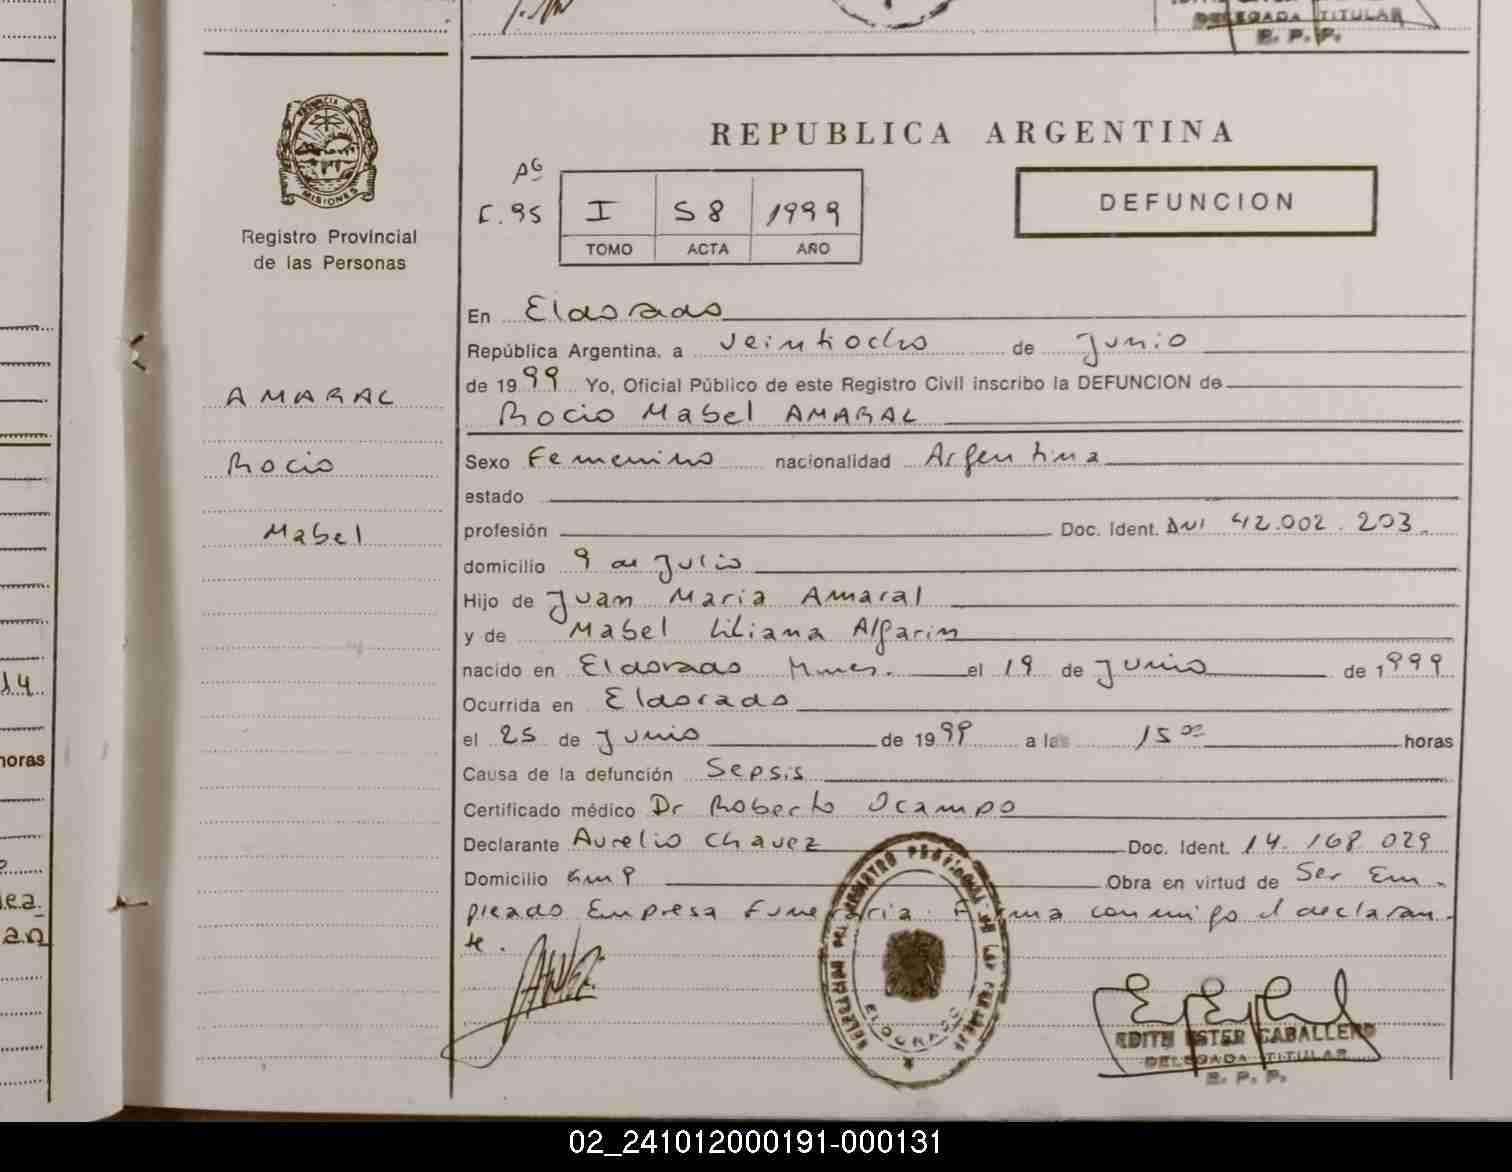 DELEGADA TITULAR
R. P. P.
PROVINCIA DE
MISIONES
Registro Provincial
de las Personas
REPUBLICA ARGENTINA
DEFUNCION
I 58 1999
TOMO ACTA AÑO
AMARAL
Rocio
Mabel
En Eldorado
República Argentina, a veintiocho de Junio
de 1999 Yo, Oficial Público de este Registro Civil inscribo la DEFUNCION de
Rocio Mabel AMARAL
Sexo Femenino nacionalidad Argentina
estado
profesión Doc. Ident. DNI 42.002.203.
domicilio 9 de Julio
Hijo de Juan Maria Amaral
y de Mabel Liliana Algarin
nacido en Eldorado Mnes. el 19 de Junio de 1999
Ocurrida en Eldorado
el 25 de Junio de 1999 a las 15 00 horas
Causa de la defunción Sepsis
Certificado médico Dr Roberto Ocampo
Declarante Aurelio Chavez Doc. Ident. 14.168.029
Domicilio Km 9 Obra en virtud de Ser Em-
pleado Empresa Funeraria. Firma conmigo el declaran-
te.
ELDORADO
EDITH ESTER CABALLERO
DELEGADA TITULAR
R. P. P.
14
horas
02_241012000191-000131